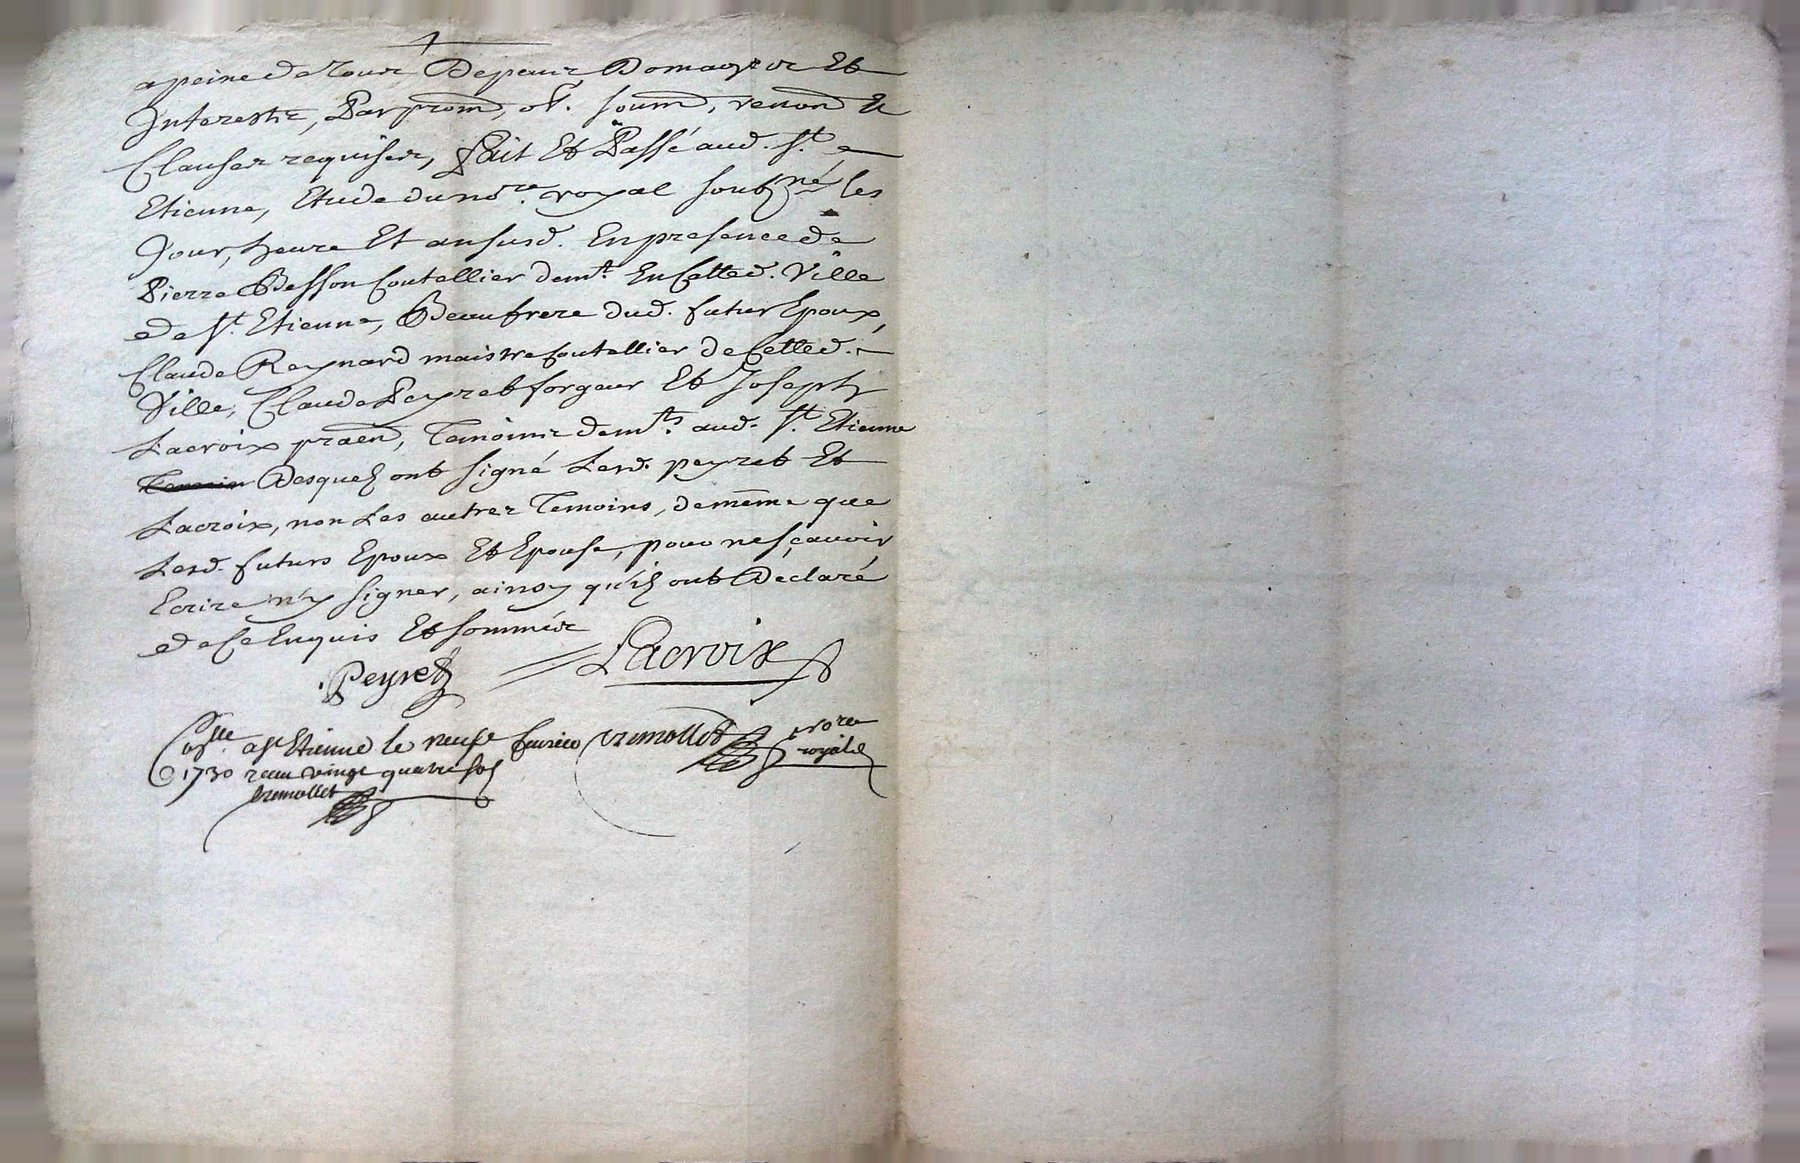 a peine de tous Depans, Domages Et
Interests, Par prom, obl. soum, renon Et
Clauses requises, fait Et Passé aud. St.
Etienne, Etude du nore. royal soubzné les
Jour, heure Et an susd. En presence de
Pierre Besson Coutellier demt. En Cetted. Ville
de St. Etienne, Beaufrere dud. futur Epoux,
Claude Reynard maistre Coutellier de Cetted.
Ville, Claude Peyret forgeur Et Joseph
Lacroix praen, Temoins demts. aud. St. Etienne
Desquels ont signé Lesd. peyret Et
Lacroix, non Les autres Temoins, de même que
Lesd. futurs Epoux Et Epouse, pour ne sçavoir
Ecrire n'y signer, ainsy qu'ils ont Declaré
de Ce Enquis Et sommés
Peyret Lacroix
a St Etienne le neufe Tremollet nore royal
1730 receu vingt quatre sols
Tremollet